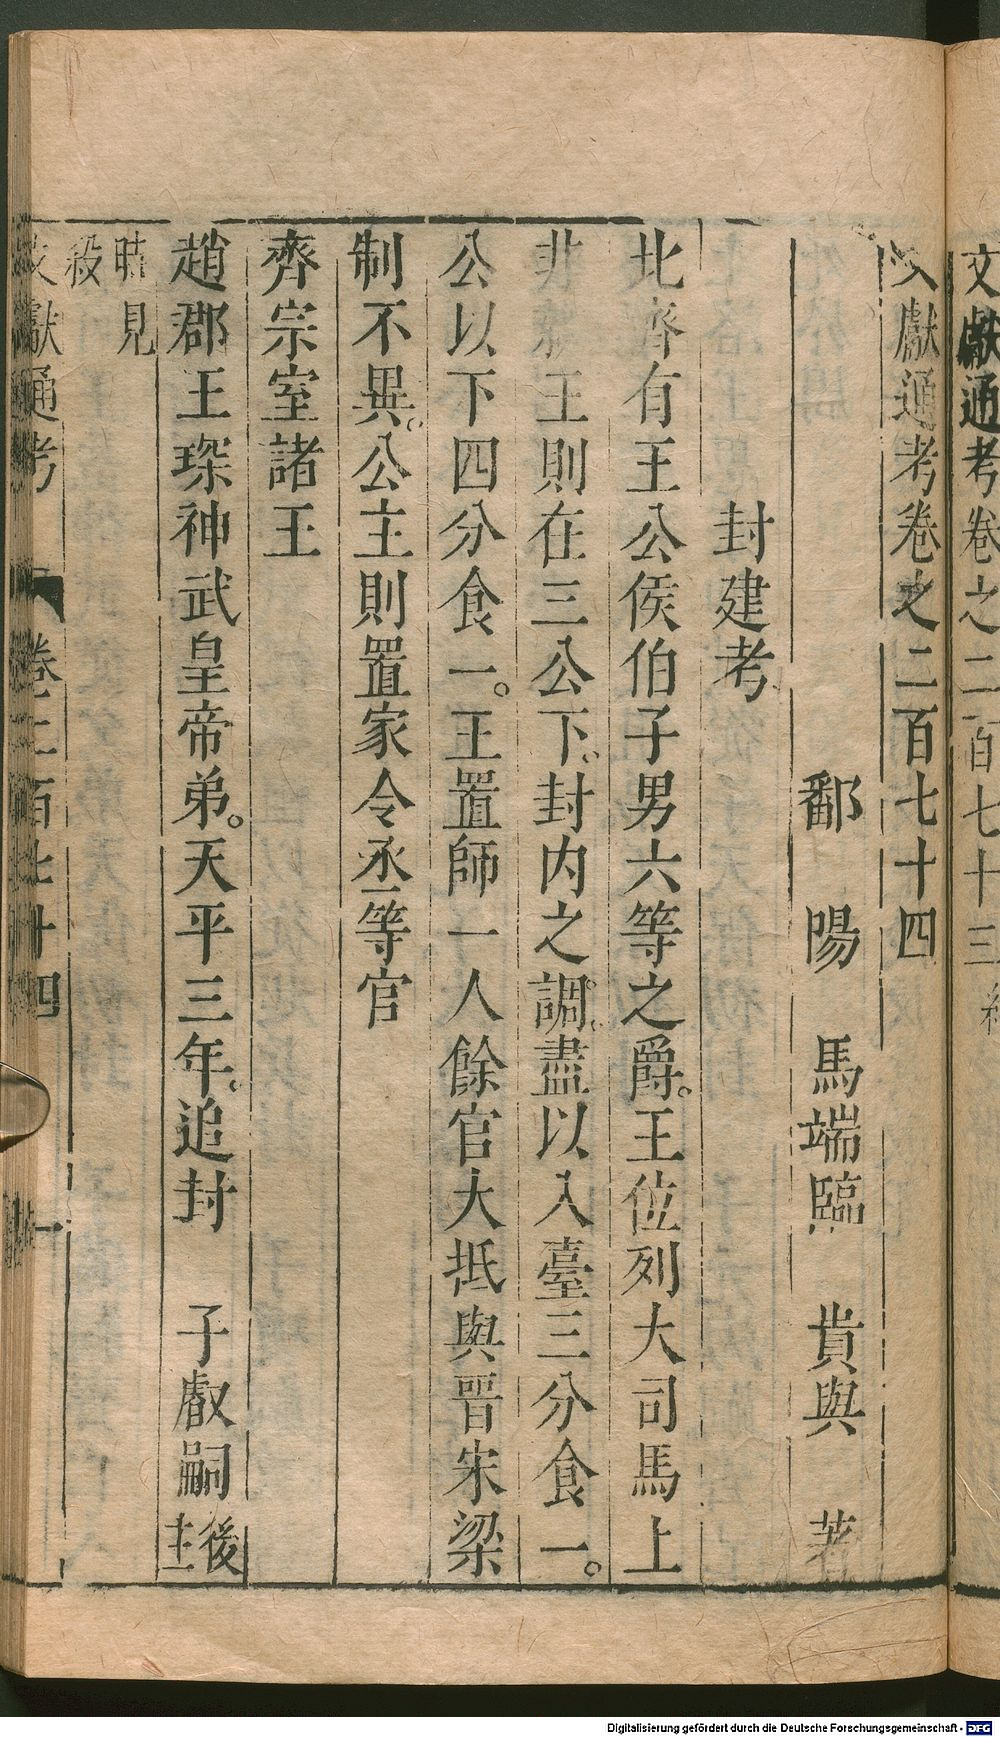 文獻通考卷之二百七十三
文獻通考卷之二百七十四
鄱陽　馬端臨　貴與　著
封建考
北齊有王公侯伯子男六等之爵。王位列大司馬上
非親王則在三公下。封内之調。盡以入臺三分食一。
公以下四分食一。王置師一人餘官大抵與晉宋梁
制不異。公主則置家令丞等官
齊宗室諸王
趙郡王琛神武皇帝弟。天平三年。追封　子叡嗣後主
時見殺
文獻通考　卷二百七十四　一
Digitalisierung gefördert durch die Deutsche Forschungsgemeinschaft - DFG